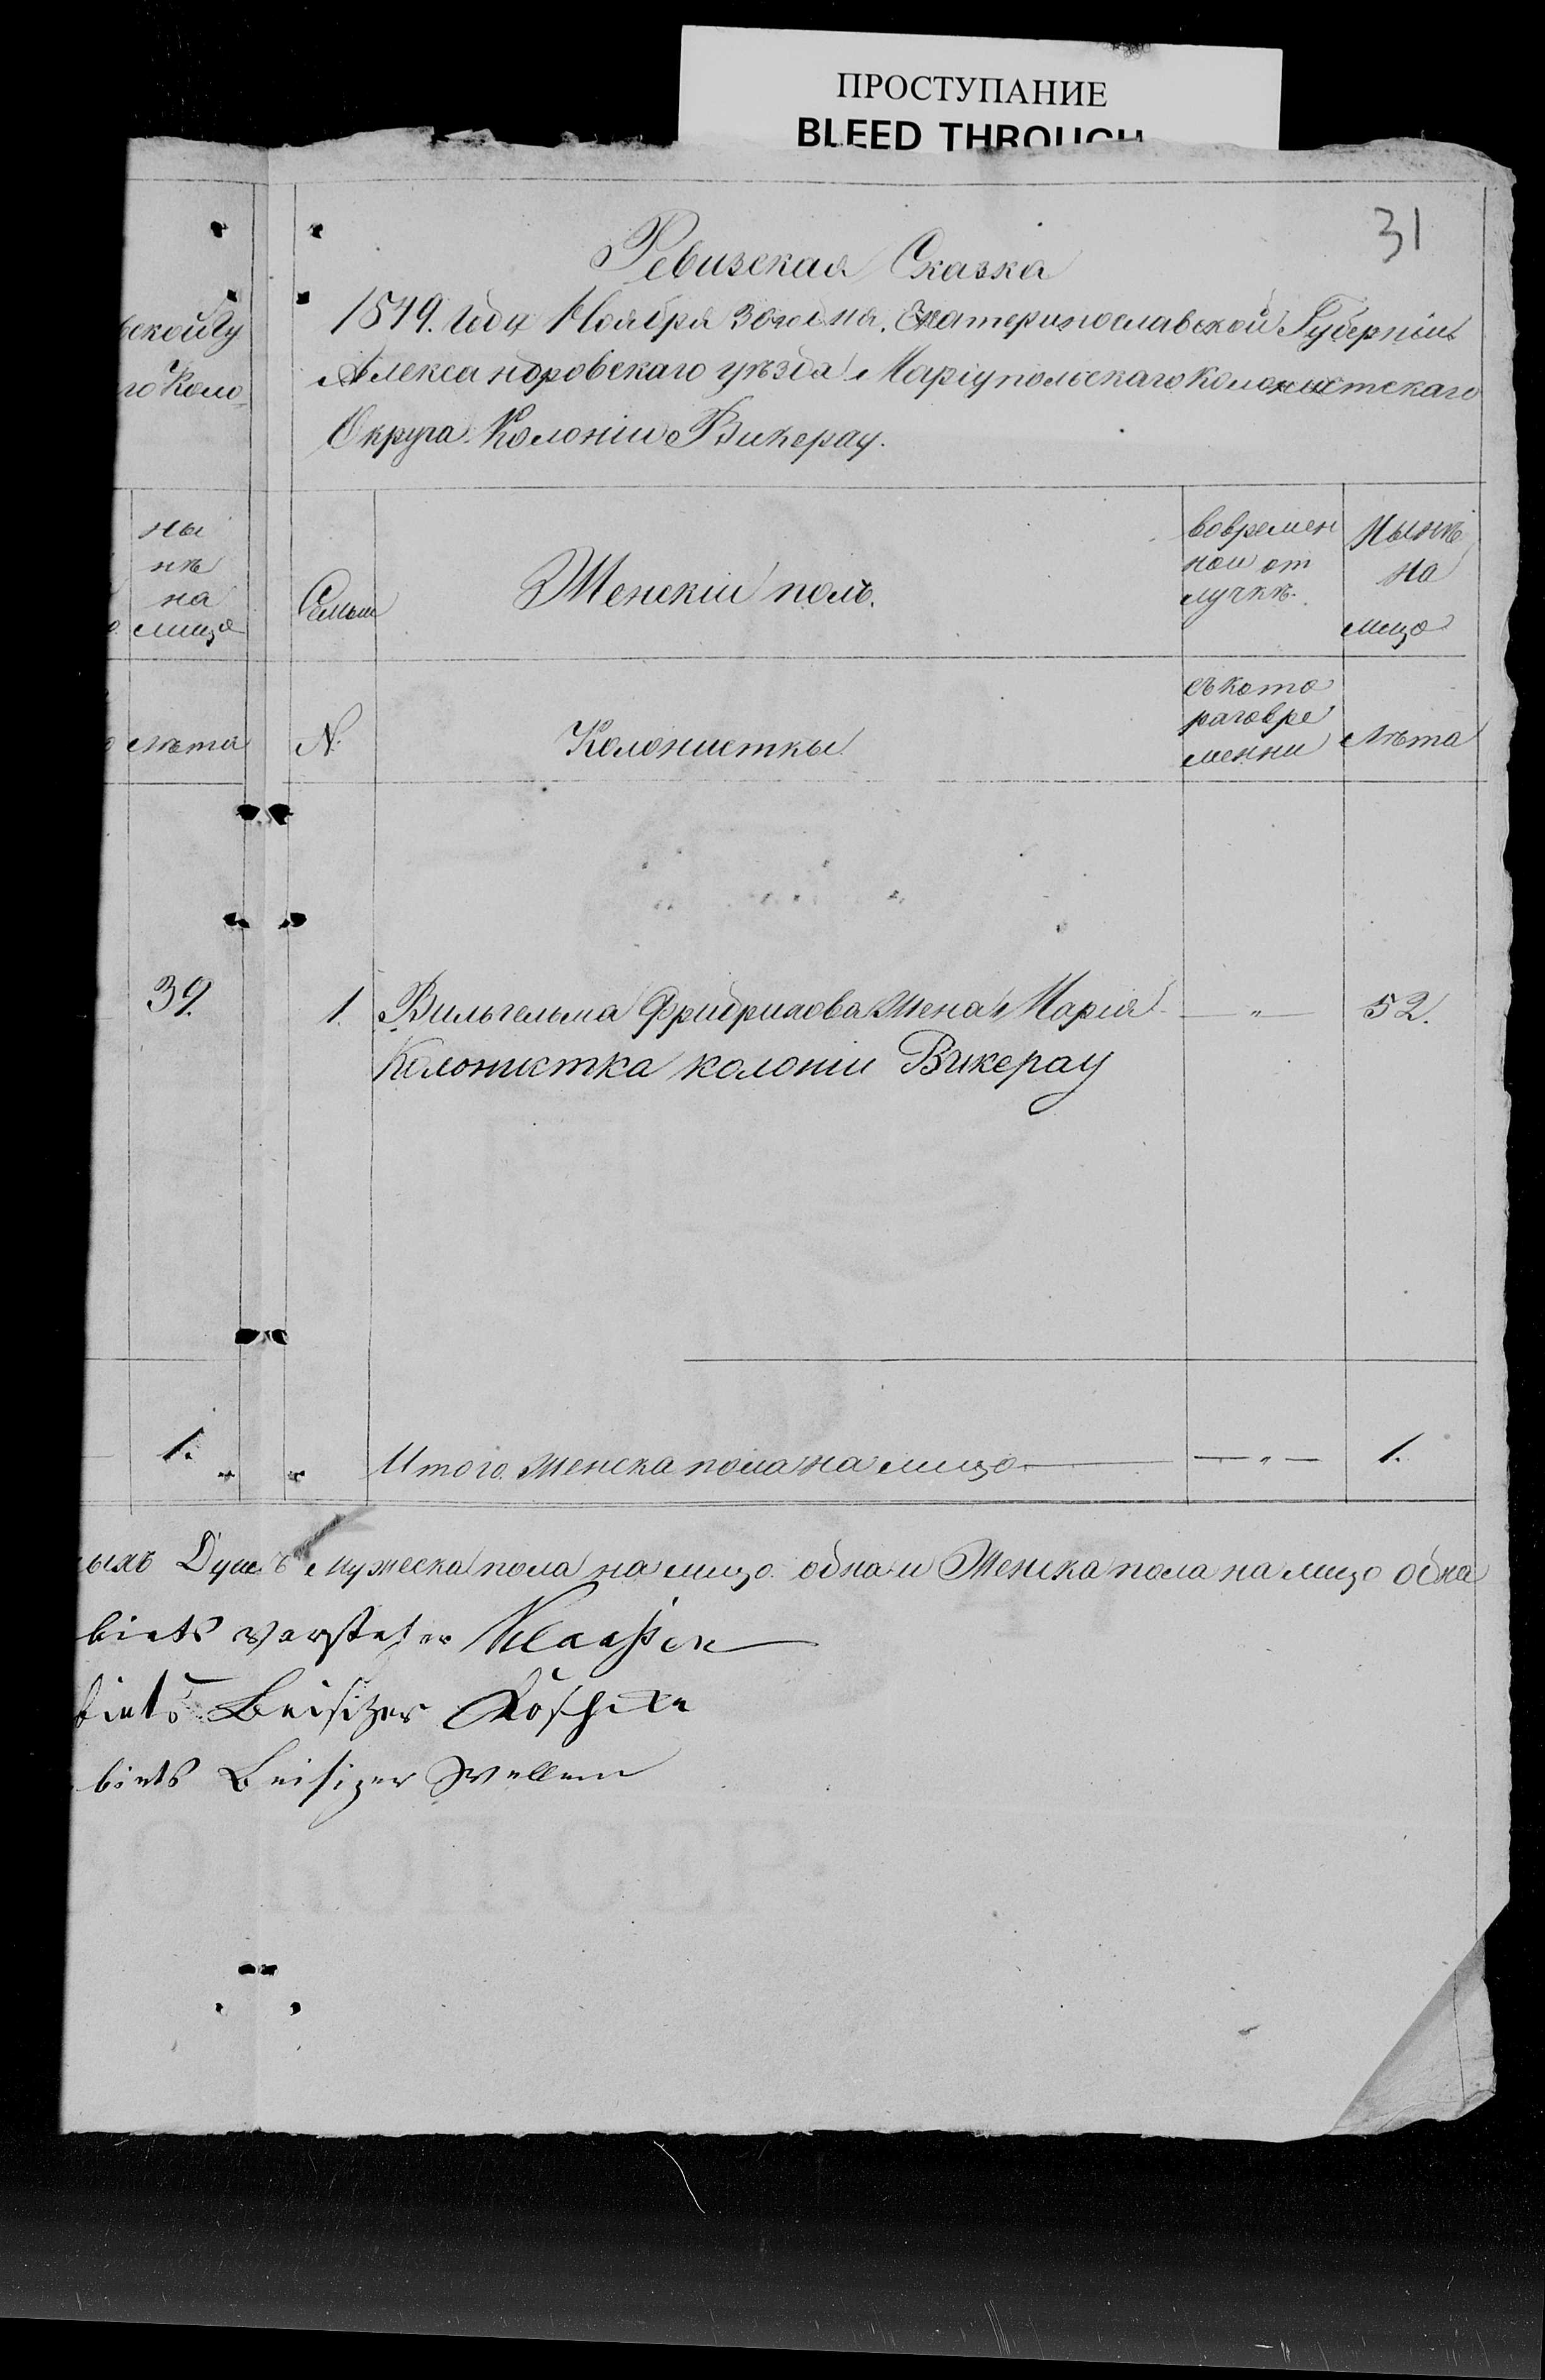 ПРОСТУПАНИЕ
BLEED THROUGH
31
Ревизская Сказка
1849. Года Ноября 30го дня. Екатеринославской Губерніи
Александровскаго уѣзда Маріупольскаго Колонистскаго
Округа Колоніи Викерау.
ской Гу
го Коло
ны
нѣ
на
лицо
Семьи
Женскій полъ.
вовремен
ной от
лучкѣ.
Нынѣ
на
лицо
лѣта
N.
Колонистки
съ кото
раго вре
менни
Лѣта
39.
1. Вильгельма Фридрихова Жена Марія — " — 52.
Колонистка колоніи Викерау
1. " " Итого женска пола на лицо — " — 1.
ыхъ Душъ мужеска пола на лицо одна и Женска пола на лицо одна
biets vorsteher Klaassen
biets Beisitzer
biets Beisizer Wellem